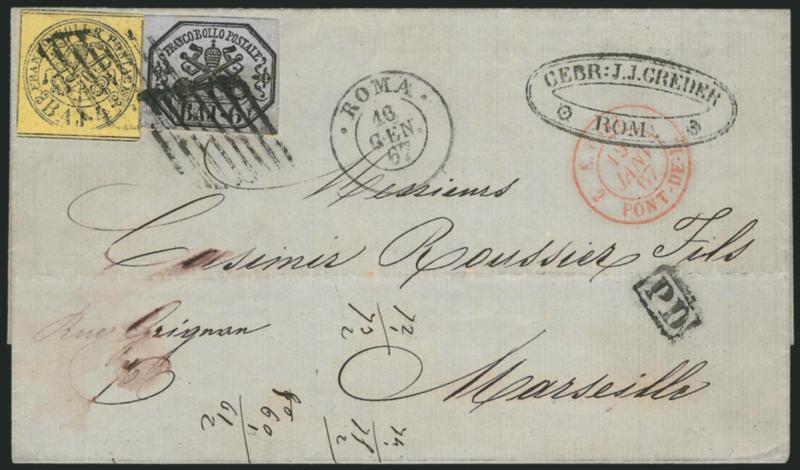 FRANCO BOLLO POSTALE
BAJ. 4
FRANCO BOLLO POSTALE
BAJ. 6
ROMA
16
GEN.
67
GEBR: J.J. GREDER
ROM.
19
JANV
67
2 PONT-DE-
Messieurs
Casimir Roussier Fils
Rue Grignan
PD
Marseille